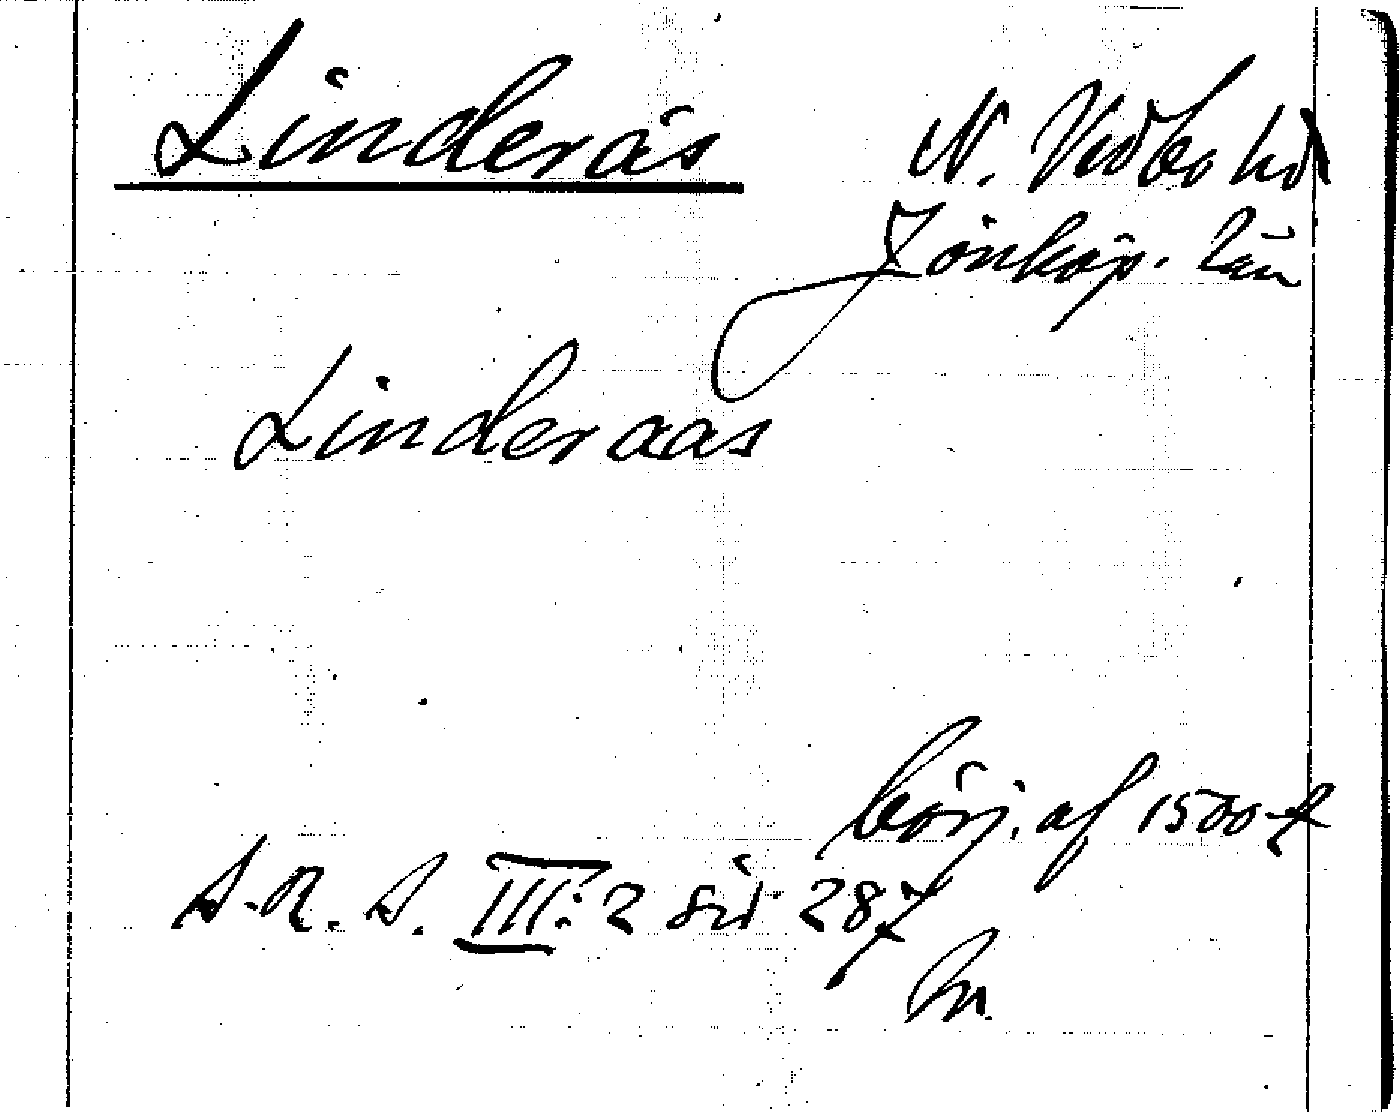 Linderås
N. Vedbo hd
Jönköp. län
Linderaas
börj. af 1500-t
S. R. S. III: 2 sid 287